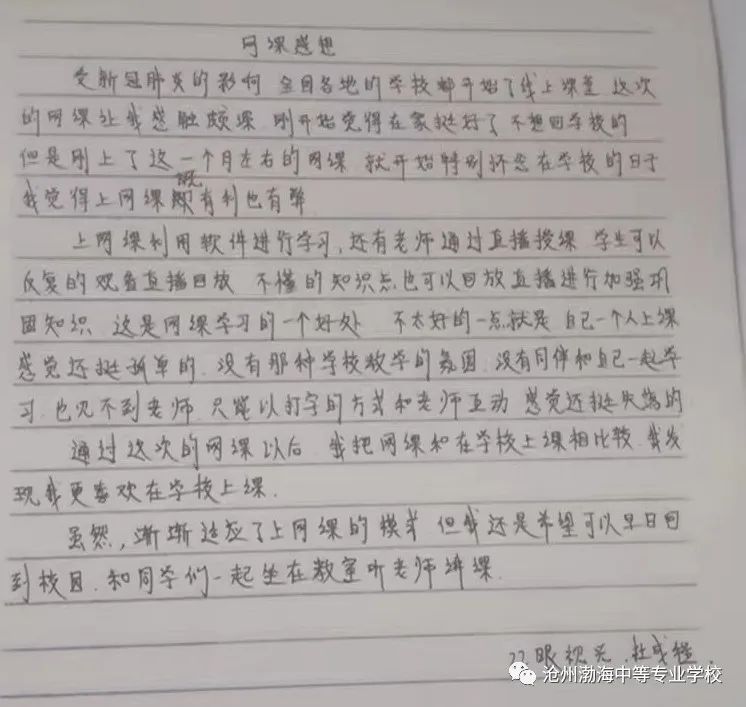 网课感想
受新冠肺炎的影响 全国各地的学校都开始了线上课堂 这次
的网课让我感触颇深 刚开始觉得在家挺好了 不想回学校的
但是刚上了这一个月左右的网课 就开始特别怀念在学校的日子
我觉得上网课既有利也有弊
上网课利用软件进行学习,还有老师通过直播授课 学生可以
反复的观看直播回放 不懂的知识点也可以回放直播进行加强巩
固知识 这是网课学习的一个好处 不太好的一点就是 自己一个人上课
感觉还挺孤单的.没有那种学校教学的氛围.没有同伴和自己一起学
习.也见不到老师 只能以打字的方式和老师互动 感觉还挺失落的
通过这次的网课以后 我把网课和在学校上课相比较.我发
现我更喜欢在学校上课.
虽然,渐渐适应了上网课的模式 但我还是希望可以早日回
到校园.和同学们一起坐在教室听老师讲课.
眼视光 杜
沧州渤海中等专业学校